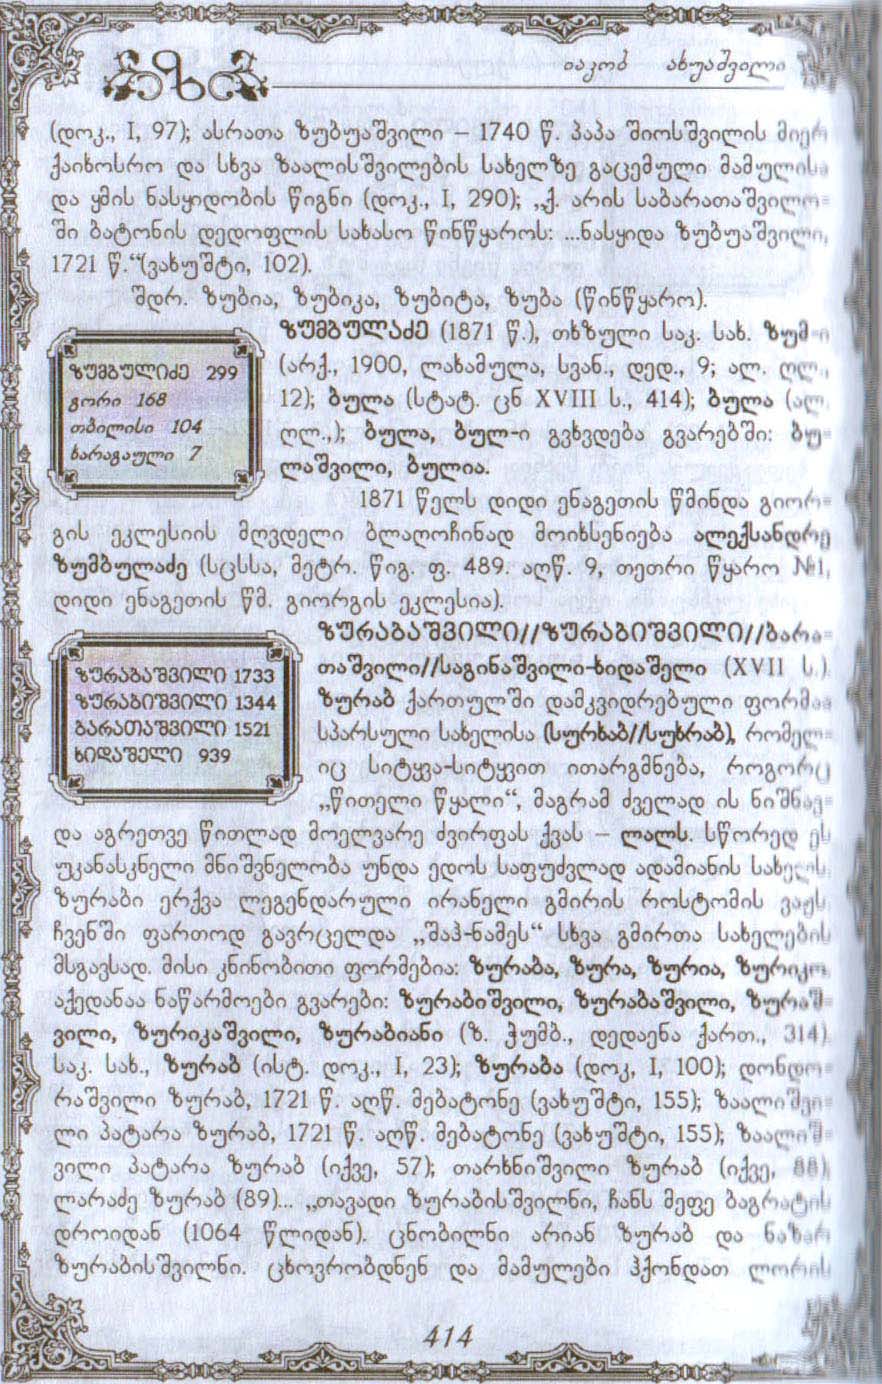 ზ
იაკობ ახუაშვილი
(დოკ., I, 97); ასრათა ზუბუაშვილი – 1740 წ. პაპა შიოსშვილის მიერ
ქაიხოსრო და სხვა ზაალისშვილების სახელზე გაცემული მამულისა
და ყმის ნასყიდობის წიგნი (დოკ., I, 290); „ქ. არის საბარათაშვილო-
ში ბატონის დედოფლის სახასო წინწყაროს: ...ნასყიდა ზუბუაშვილი,
1721 წ.“(ვახუშტი, 102).
შდრ. ზუბია, ზუბიკა, ზუბიტა, ზუბა (წინწყარო).
ზუმბულიძე 299
გორი 168
თბილისი 104
ხარაგაული 7
ზუმბულაძე (1871 წ.), თხზული საკ. სახ. ზუმ-ი
(არქ., 1900, ლახამულა, სვან., დედ., 9; ალ. ღლ.,
12); ბულა (სტატ. ცნ XVIII ს., 414); ბულა (ალ.
ღლ.,); ბულა, ბულ-ი გვხვდება გვარებში: ბუ-
ლაშვილი, ბულია.
1871 წელს დიდი ენაგეთის წმინდა გიორ-
გის ეკლესიის მღვდელი ბლაღოჩინად მოიხსენიება ალექსანდრე
ზუმბულაძე (სცსსა, მეტრ. წიგ. ფ. 489. აღწ. 9, თეთრი წყარო №1,
დიდი ენაგეთის წმ. გიორგის ეკლესია).
ზურაბაშვილი 1733
ზურაბიშვილი 1344
ბარათაშვილი 1521
ხიდაშელი 939
ზურაბაშვილი//ზურაბიშვილი//ბარა-
თაშვილი//საგინაშვილი-ხიდაშელი (XVII ს.)
ზურაბ ქართულში დამკვიდრებული ფორმაა
სპარსული სახელისა (სურხაბ//სუხრაბ), რომელ-
იც სიტყვა-სიტყვით ითარგმნება, როგორც
„წითელი წყალი“, მაგრამ ძველად ის ნიშნავ-
და აგრეთვე წითლად მოელვარე ძვირფას ქვას – ლალს. სწორედ ეს
უკანასკნელი მნიშვნელობა უნდა ედოს საფუძვლად ადამიანის სახელს.
ზურაბი ერქვა ლეგენდარული ირანელი გმირის როსტომის ვაჟს.
ჩვენში ფართოდ გავრცელდა „შაჰ-ნამეს“ სხვა გმირთა სახელების
მსგავსად. მისი კნინობითი ფორმებია: ზურაბა, ზურა, ზურია, ზურიკო.
აქედანაა ნაწარმოები გვარები: ზურაბიშვილი, ზურაბაშვილი, ზურაშ-
ვილი, ზურიკაშვილი, ზურაბიანი (ზ. ჭუმბ., დედაენა ქართ., 314).
საკ. სახ., ზურაბ (ისტ. დოკ., I, 23); ზურაბა (დოკ, I, 100); დონდო-
რაშვილი ზურაბ, 1721 წ. აღწ. მებატონე (ვახუშტი, 155); ზაალიშვი-
ლი პატარა ზურაბ, 1721 წ. აღწ. მებატონე (ვახუშტი, 155); ზაალიშ-
ვილი პატარა ზურაბ (იქვე, 57); თარხნიშვილი ზურაბ (იქვე, 88),
ლარაძე ზურაბ (89)... „თავადი ზურაბისშვილნი, ჩანს მეფე ბაგრატის
დროიდან (1064 წლიდან). ცნობილნი არიან ზურაბ და ნაზარ
ზურაბისშვილნი. ცხოვრობდნენ და მამულები ჰქონდათ ლორის
414